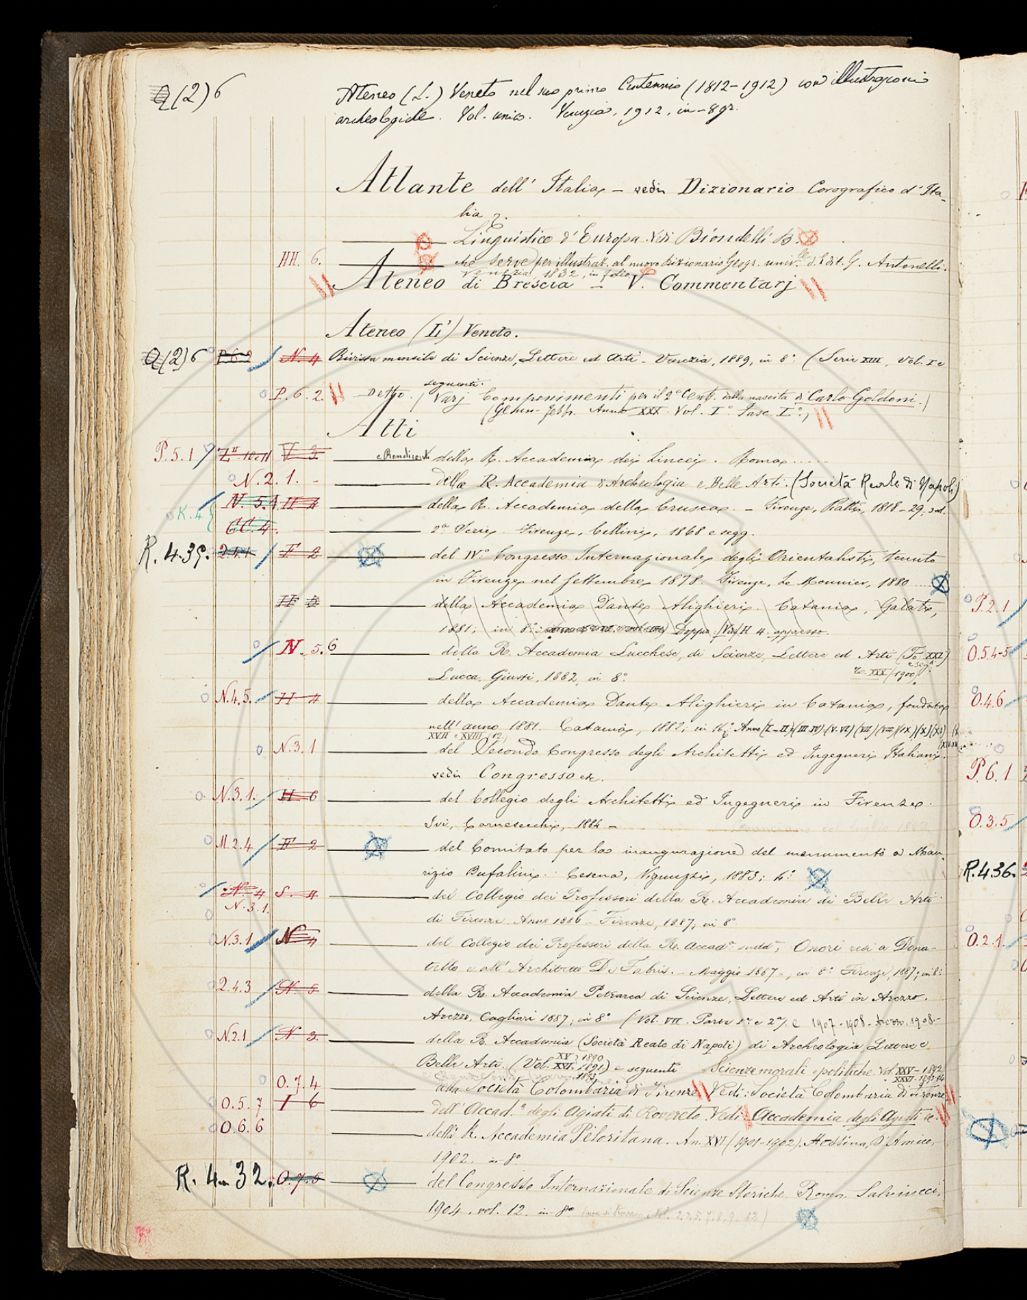 Q(2)6 Ateneo (L') Veneto nel suo primo Centennio (1812-1912) con illustrazioni
archeologiche. Vol. unico. Venezia, 1912, in-8gr.
Atlante dell' Italia - vedi Dizionario Corografico d'Ita-
lia
Linguistico d'Europa. Vedi Biondelli B.
HH. 6. che serve per illustraz. al nuovo Dizionario Geogr. univ.le d. Edit. G. Antonelli.
Venezia 1832, in folio
Ateneo di Brescia - V. Commentarj
Ateneo (L') Veneto.
Q(2)6 P.6.2 N. 4 Rivista mensile di Scienze, Lettere ed Arti - Venezia, 1889, in 8° (Serie XIII, Vol. I e
seguenti.
P. 6. 2 Detto. (Varj Componimenti per il 2° Cent. della nascita di Carlo Goldoni.)
(Genn-Febb. Anno XXX Vol. I° Fasc. I°.)
Atti
P.5.1 V. 3 e Rendiconti della R. Accademia dei Lincei. Roma
N. 2. 1. della R. Accademia d'Archeologia e Belle Arti. (Società Reale di Napoli)
K. 4 N. 5.4 H 4 della R. Accademia della Crusca. - Firenze, Piatti, 1818-29, vol.
CC. 4. 2a Serie. Firenze, Cellini, 1868 e segg.
R. 4.35. F 2 del IV° Congresso Internazionale degli Orientalisti, tenuto
in Firenze nel settembre 1878. Firenze, Le Monnier, 1880
della Accademia Dante Alighieri. Catania, Galati,
1881, in 8° Doppio. Vedi H 4. appresso.
N. 5. 6 della R. Accademia Lucchese, di Scienze, Lettere ed Arti (To. XXI)
e seg.i
Lucca, Giusti, 1882, in 8° To. XXX (1900)
N.4.5. H 4 della Accademia Dante Alighieri in Catania, fondata
nell' anno 1881. Catania, 1882, in 16° Anno (I-II) (III-IV) (V-VI) (VII) (VIII) (IX) (X) (XI)
XVII e XVIII
N. 3. 1 del Secondo Congresso degli Architetti ed Ingegneri Italiani.
vedi Congresso ec.
N. 3. 1. H 6 del Collegio degli Architetti ed Ingegneri in Firenze.
Ivi, Carnesecchi, 1884 -
M. 2. 4 F 2 del Comitato per la inaugurazione del monumento a Mau-
rizio Bufalini. Cesena, Vignuzzi, 1883; 4°
N. 4 S. 4 del Collegio dei Professori della R. Accademia di Belle Arti
N. 3. 1. di Firenze. Anno 1886 - Firenze, 1887, in 8°
N. 3. 1 N 4 del Collegio dei Professori della R. Accad.a sudd.a, Onori resi a Dona-
tello e all' Architetto De Fabris. - Maggio 1887 - in 8° Firenze, 1887, in 8°
2. 4. 3 della R. Accademia Petrarca di Scienze, Lettere ed Arti in Arezzo.
Arezzo, Cagliari 1887, in 8° (Vol. VII. Parte 1a e 2a) e 1907-1908. Arezzo, 1908 -
N.2.1 N 3. della R. Accademia (Società Reale di Napoli) di Archeologia, Lettere e
Belle Arti. (Vol. XV, 1890 XVI, 1891) e seguenti Scienze morali e politiche Vol. XXV - 1892
O. 7. 4 alla Società Colombaria di Firenze Vedi: Società Colombaria di Firenze
O. 5. 7 I 6 dell' Accad.a degli Agiati di Rovereto. Vedi Accademia degli Agiati ec.
O. 6. 6 della R. Accademia Peloritana. An. XVI (1901-1902). Messina, D'Amico,
1902. in 8°
R. 4. 32. O. 7. 6 del Congresso Internazionale di Scienze Storiche. Roma. Salviucci,
1904, vol. 12. in 8°
P.2.1
O.5.4-5
O.4.6
P.6.1
O.3.5
R.436.
O.2.1.